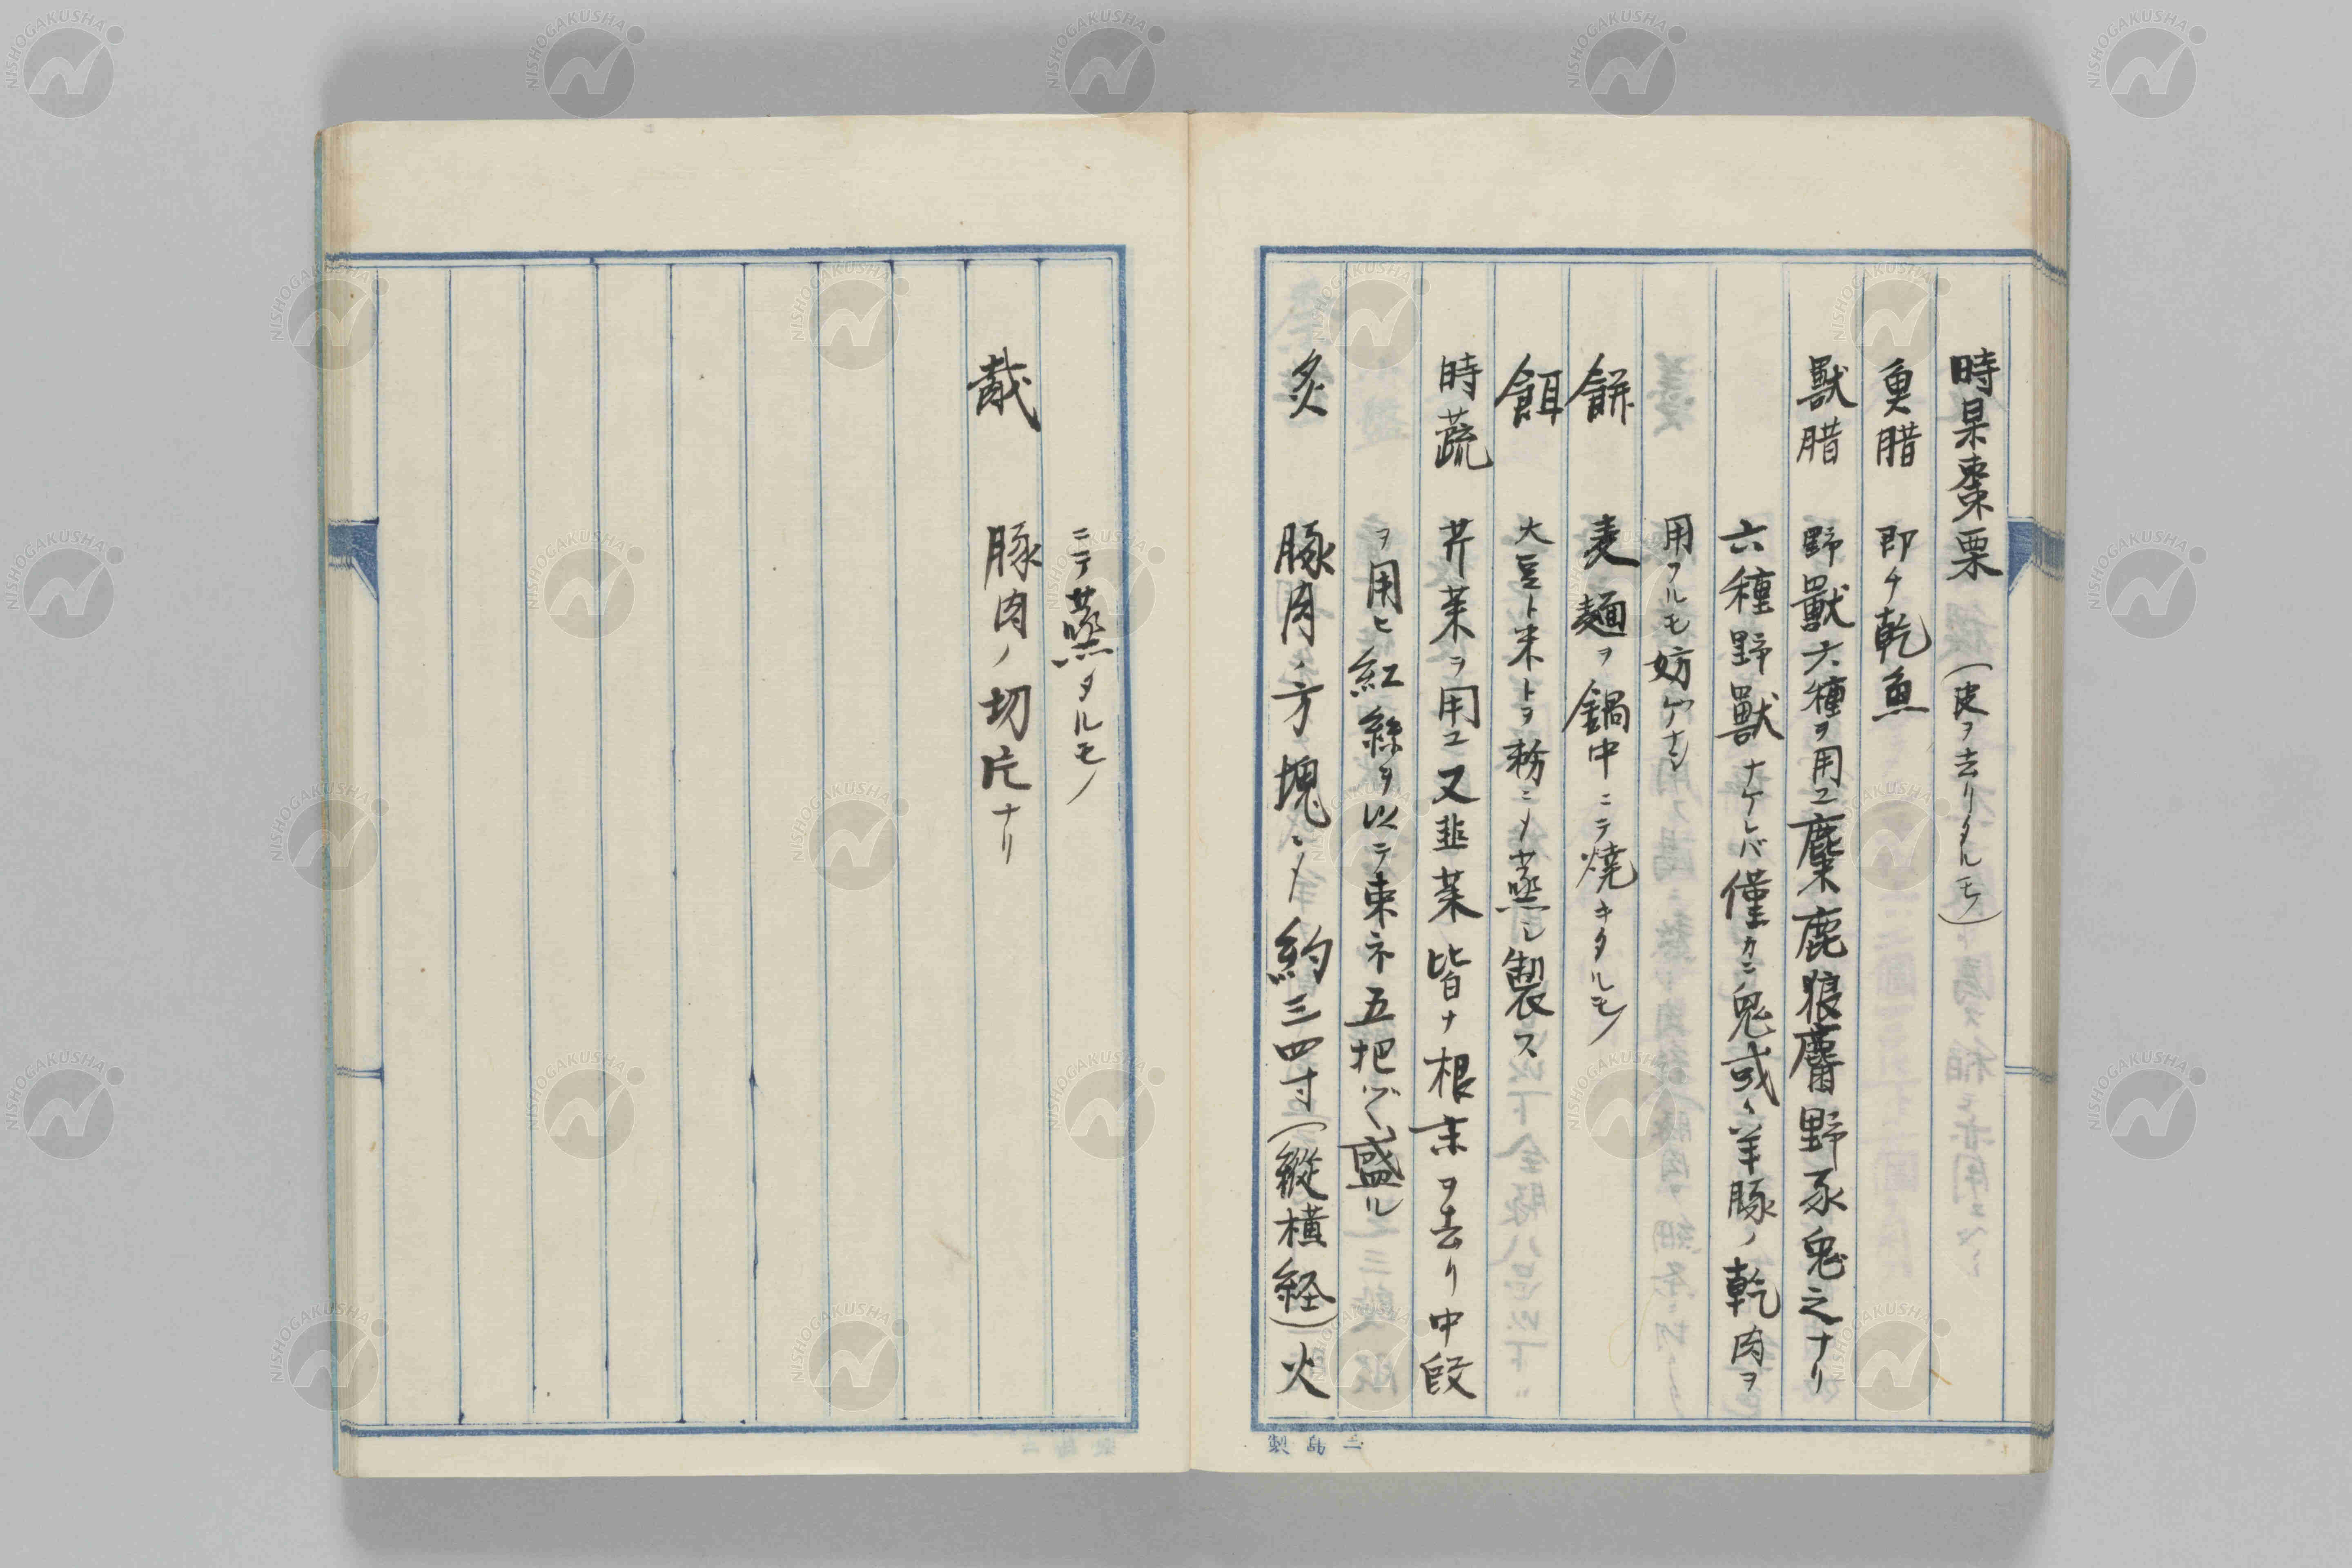 時果棗栗 (皮ヲ去リタルモノ)
魚腊 即チ乾魚
獸腊 野獸六種ヲ用ユ麋鹿狼麕野豕兎之ナリ
六種野獸ナケレバ僅カニ兎或ハ羊豚ノ乾肉ヲ
用フルモ妨ゲナシ
餅 麦麺ヲ鍋中ニテ焼キタルモノ
餌 大豆ト米トヲ粉ニシ蒸シ製ス
時蔬 芹菜ヲ用ユ又韮菜皆ナ根末ヲ去リ中段
ヲ用ヒ紅絲ヲ以テ束ネ五把ヅヽ盛ル
炙 豚肉ノ方塊ニシ約三四寸(縱横経)火
ニテ蒸タルモノ
胾 豚肉ノ切片ナリ
製島二
NISHOGAKUSHA